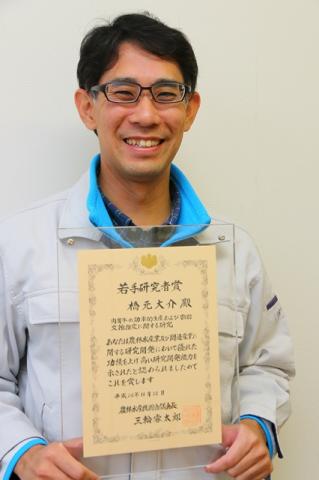 若手研究者賞
橋元大介 殿
肉用牛の効率的生産および放牧
文抱推定に関する研究
あなたは農林水産業及び関連産業に
関する研究開発において優れた
功績を上げ高い研究開発能力を
示されたと認められましたので
これを賞します
平成26年11月12日
農林水産技術会議会長
三輪睿太郎